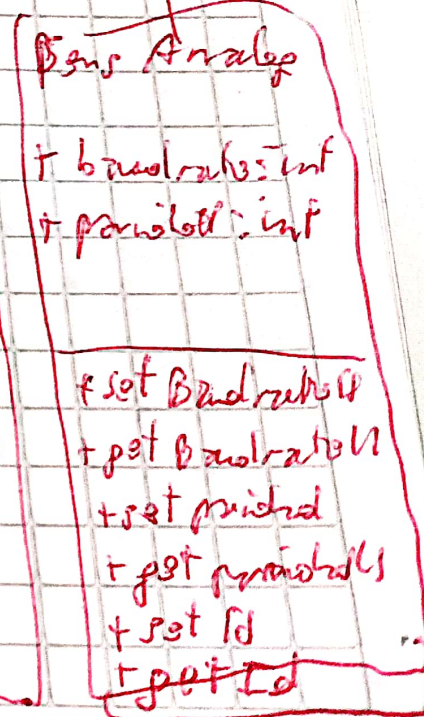 Sens Analog
+ baudrate: int
+ paridad: int
+ set Baudrate()
+ get Baudrate()
+ set paridad
+ get paridad()
+ set Id
+ get Id